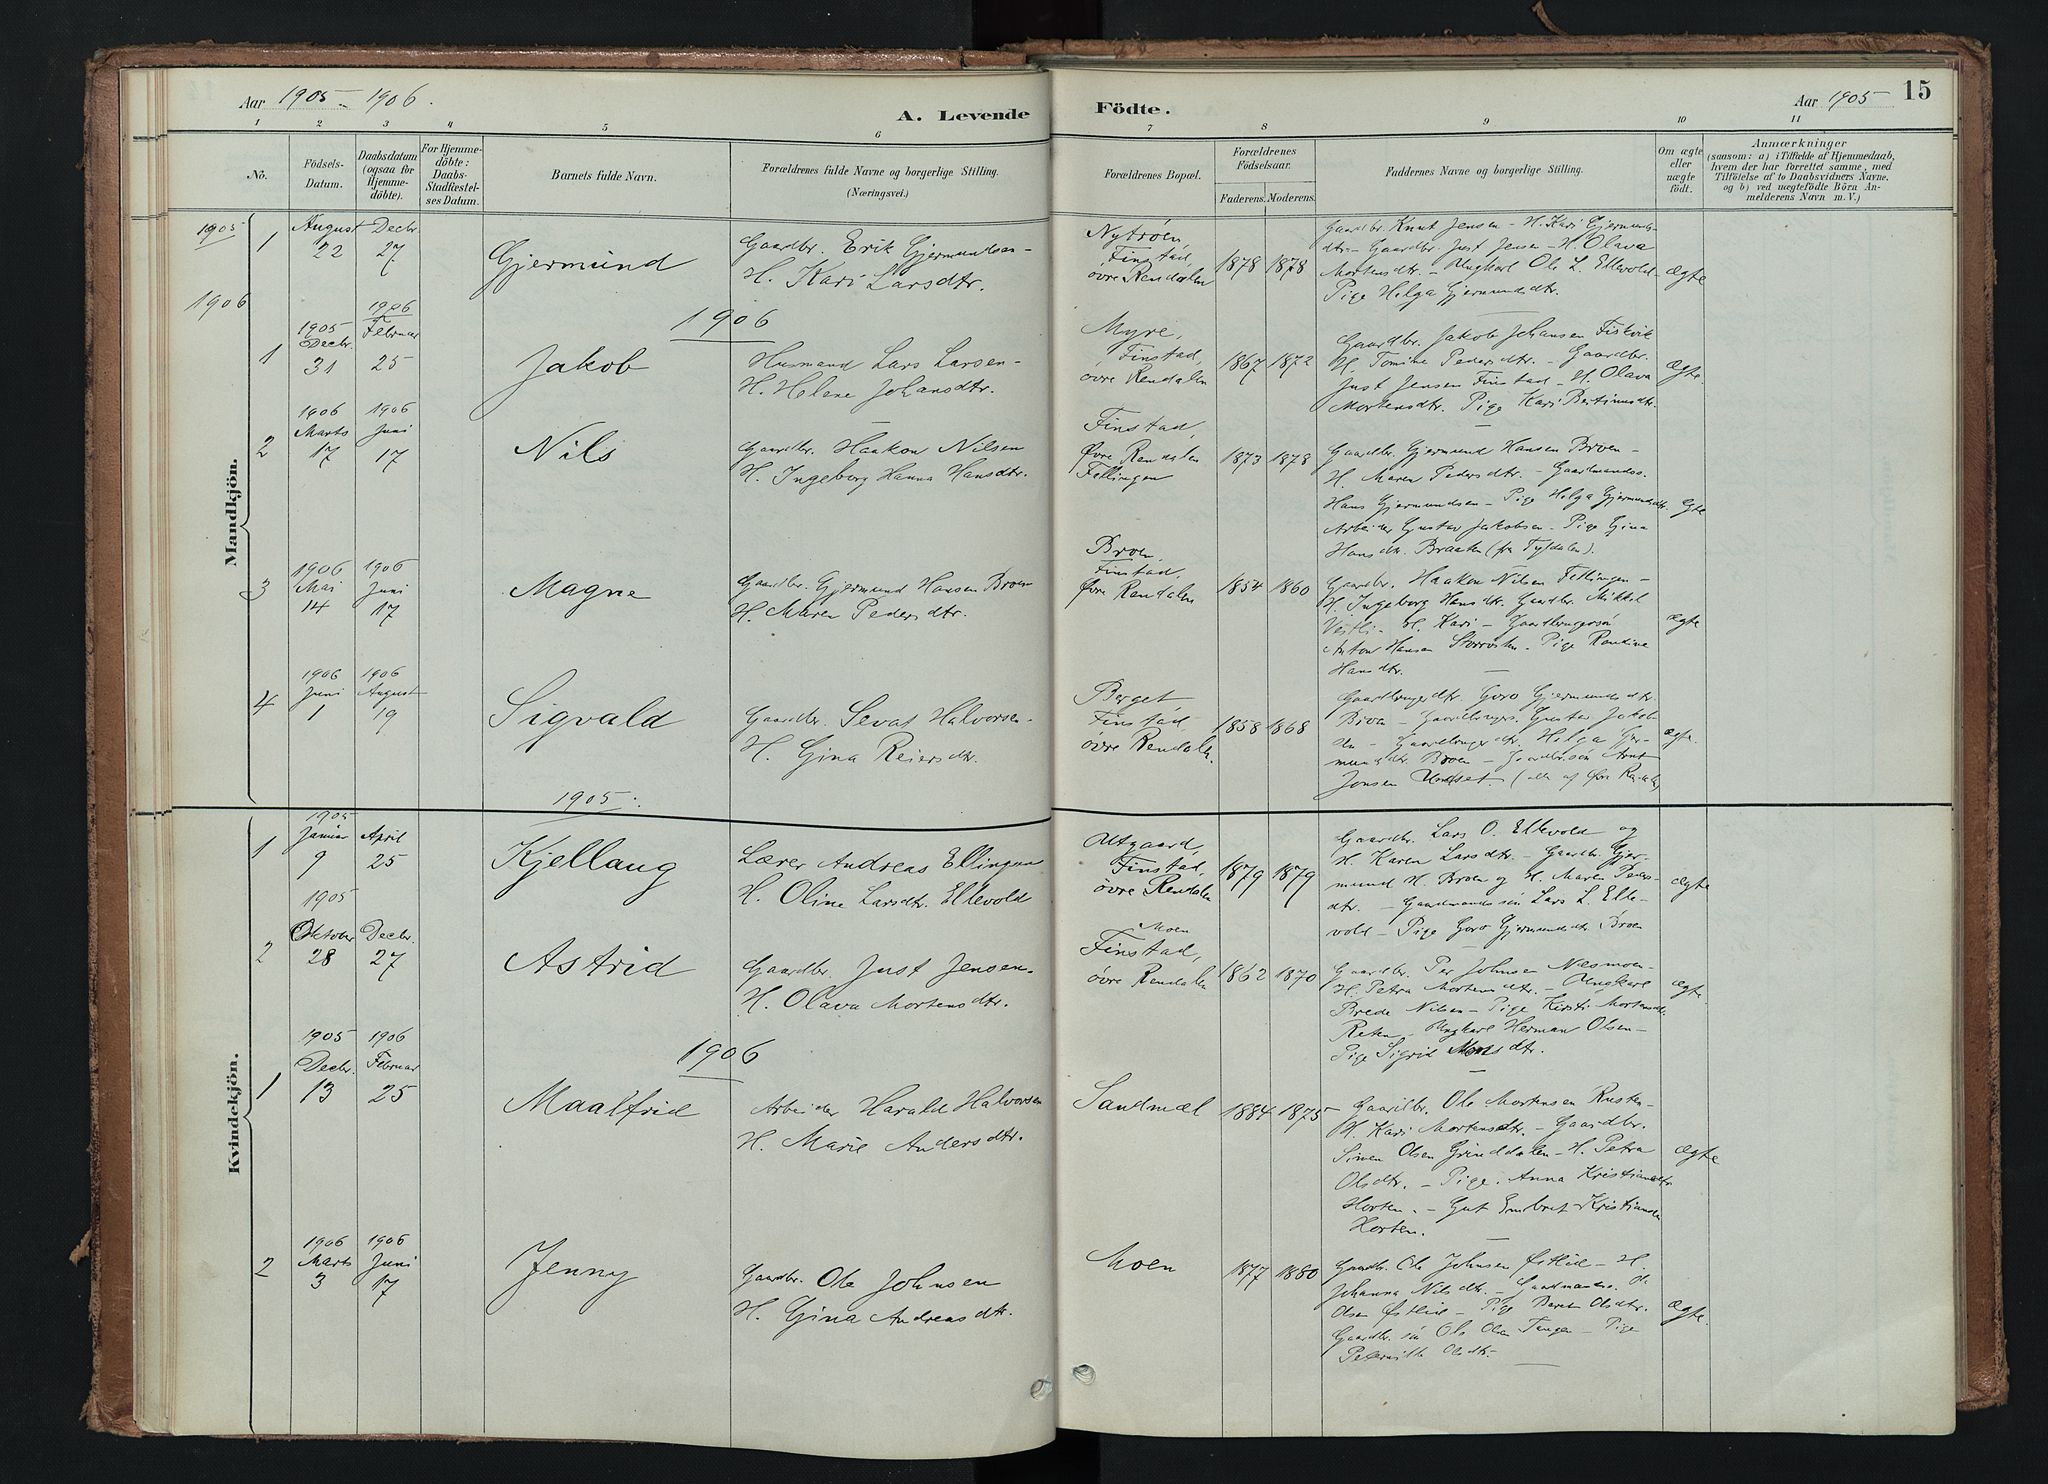 Aar 1905 - 1906.
A. Levende
1 2 3 4 5 6
No.
Födsels-Datum.
Daabsdatum (ogsaa for Hjemmedöbte).
For Hjemmedöbte: Daabs-Stadfæstelses Datum.
Barnets fulde Navn.
Forældrenes fulde Navne og borgerlige Stilling.
(Næringsvei.)
Födte.
Aar 1905
15
7 8 9 10 11
Forældrenes Bopæl.
Forældrenes Födselsaar.
Faderens. Moderens.
Faddernes Navne og borgerlige Stilling.
Om ægte eller uægte födt.
Anmærkninger
(saasom: a) i Tilfælde af Hjemmedaab, hvem der har forrettet samme, med Tilföielse af to Daabsvidners Navne, og b) ved uægtefödte Börn Anmelderens Navn m. V.)
Mandkjön.
1905
1
August 22
Decbr. 27
Gjermund
Gaardbr. Erik Gjermundsen -
H. Kari Larsdtr.
Nytröen,
Finstad,
øvre Rendalen
1878 1878
Gaardbr. Knut Jensen - H. Kari Gjermunds-
dtr - Gaardbr. Just Jensen - H. Olava
Mortensdtr. - Ungkarl Ole L. Ellevold -
Pige Helga Gjermundsdtr.
ægte
1906
1906
1
1905 Decbr. 31
1906 Februar 25
Jakob
Husmand Lars Larsen -
H. Helene Johansdtr.
Myre,
Finstad,
øvre Rendalen
1867 1872
Gaardbr. Jakob Johansen Fiskvik
H. Tomine Pedersdtr. - Gaardbr.
Just Jensen Finstad - H. Olava
Mortensdtr. Pige Kari Bertinusdtr.
ægte
2
1906 Marts 17
1906 Juni 17
Nils
Gaardbr. Haakon Nilsen
H. Ingeborg Hanna Hansdtr.
Finstad,
Øvre Rendalen
Fellingen
1873 1878
Gaardbr. Gjermund Hansen Broen -
H. Maren Pedersdtr. - Gaardmands.
Hans Gjermundsen - Pige Helga Gjermundsdtr.
Arbeider Gustav Jakobsen - Pige Gina
Hansdtr. Braaten (fra Tyldalen).
ægte
3
1906 Mai 14
1906 Juni 17
Magne
Gaardbr. Gjermund Hansen Broen
H. Maren Pedersdtr.
Broen,
Finstad,
Øvre Rendalen
1854 1860
Gaardbr. Haakon Nilsen Fellingen -
H. Ingeborg Hansdtr. Gaardbr. Mikkel
Vestli - H. Kari - Gaardbrugersön
Anton Hansen - Pige
Hansdtr.
ægte
4
1906 Juni 1
1906 August 19
Sigvald
Gaardbr. Sevat Halvorsen -
H. Gina Reiersdtr.
Berget
Finstad
øvre Rendalen.
1858 1868
Gaardbrugerdtr. Goro Gjermundsdtr.
Broen - Gaardbrugers. Gustav Jakob-
sen - Gaardbrugerdtr. Helga Gjer-
mundsdtr. Broen - Gaardbrsön Arnt
Jonsen Undset. (alle af Øvre Rendalen)
ægte.
1905.
Kvindekjön.
1
1905 Januar 9
April 25
Kjellaug
Lærer Andreas Ellingsen
H. Oline Larsdtr. Ellevold
Utgaard,
Finstad,
øvre Rendalen
1879 1879
Gaardbr. Lars O. Ellevold og
H. Karen Larsdtr. - Gaardbr. Gjer-
mund H. Broen og H. Maren Peders-
dtr. - Gaardmandssön Lars L. Elle-
vold - Pige Goro Gjermundsdtr. Broen
ægte
2
1905 Oktober 28
Decbr. 27
Astrid
Gaardbr. Just Jensen -
H. Olava Mortensdtr.
Moen
Finstad,
øvre Rendalen
1862 1870
Gaardbr. Per Johnsen Næsmoen -
H. Petra Mortensdtr. - Ungkarl
Brede Nilsen - Pige Kirsti Mortensdtr.
Reten - Ungkarl Herman Olsen -
Pige Sigrid
ægte
1906
1
1905 Decbr. 13
1906 Februar 25
Maalfrid
Arbeider Harald Halvorsen
H. Marie Andersdtr.
Sandmæl
1884 1875
Gaardbr. Ole Mortensen Rusten -
H. Kari Mortensdtr. - Gaardbr.
Simen Olsen Grinddalen - H. Petra
Olsdtr. - Pige. Anna Kristiansdtr
Horten. - Gut Embret Kristiansen
Horten.
ægte
2
1906 Marts 3
1906 Juni 17
Jenny
Gaardbr. Ole Johnsen
H. Gina Andreasdtr.
Moen
1877 1880
Gaardbr. Ole Johnsen Østlie - H.
Johanna Nilsdtr. - Gaardmands. O.
Olsen Østlie - Pige Beret Olsdtr.
Gaardbr. sön Ole Olsen Tangen - Pige
Pedernille Olsdtr. -
ægte.